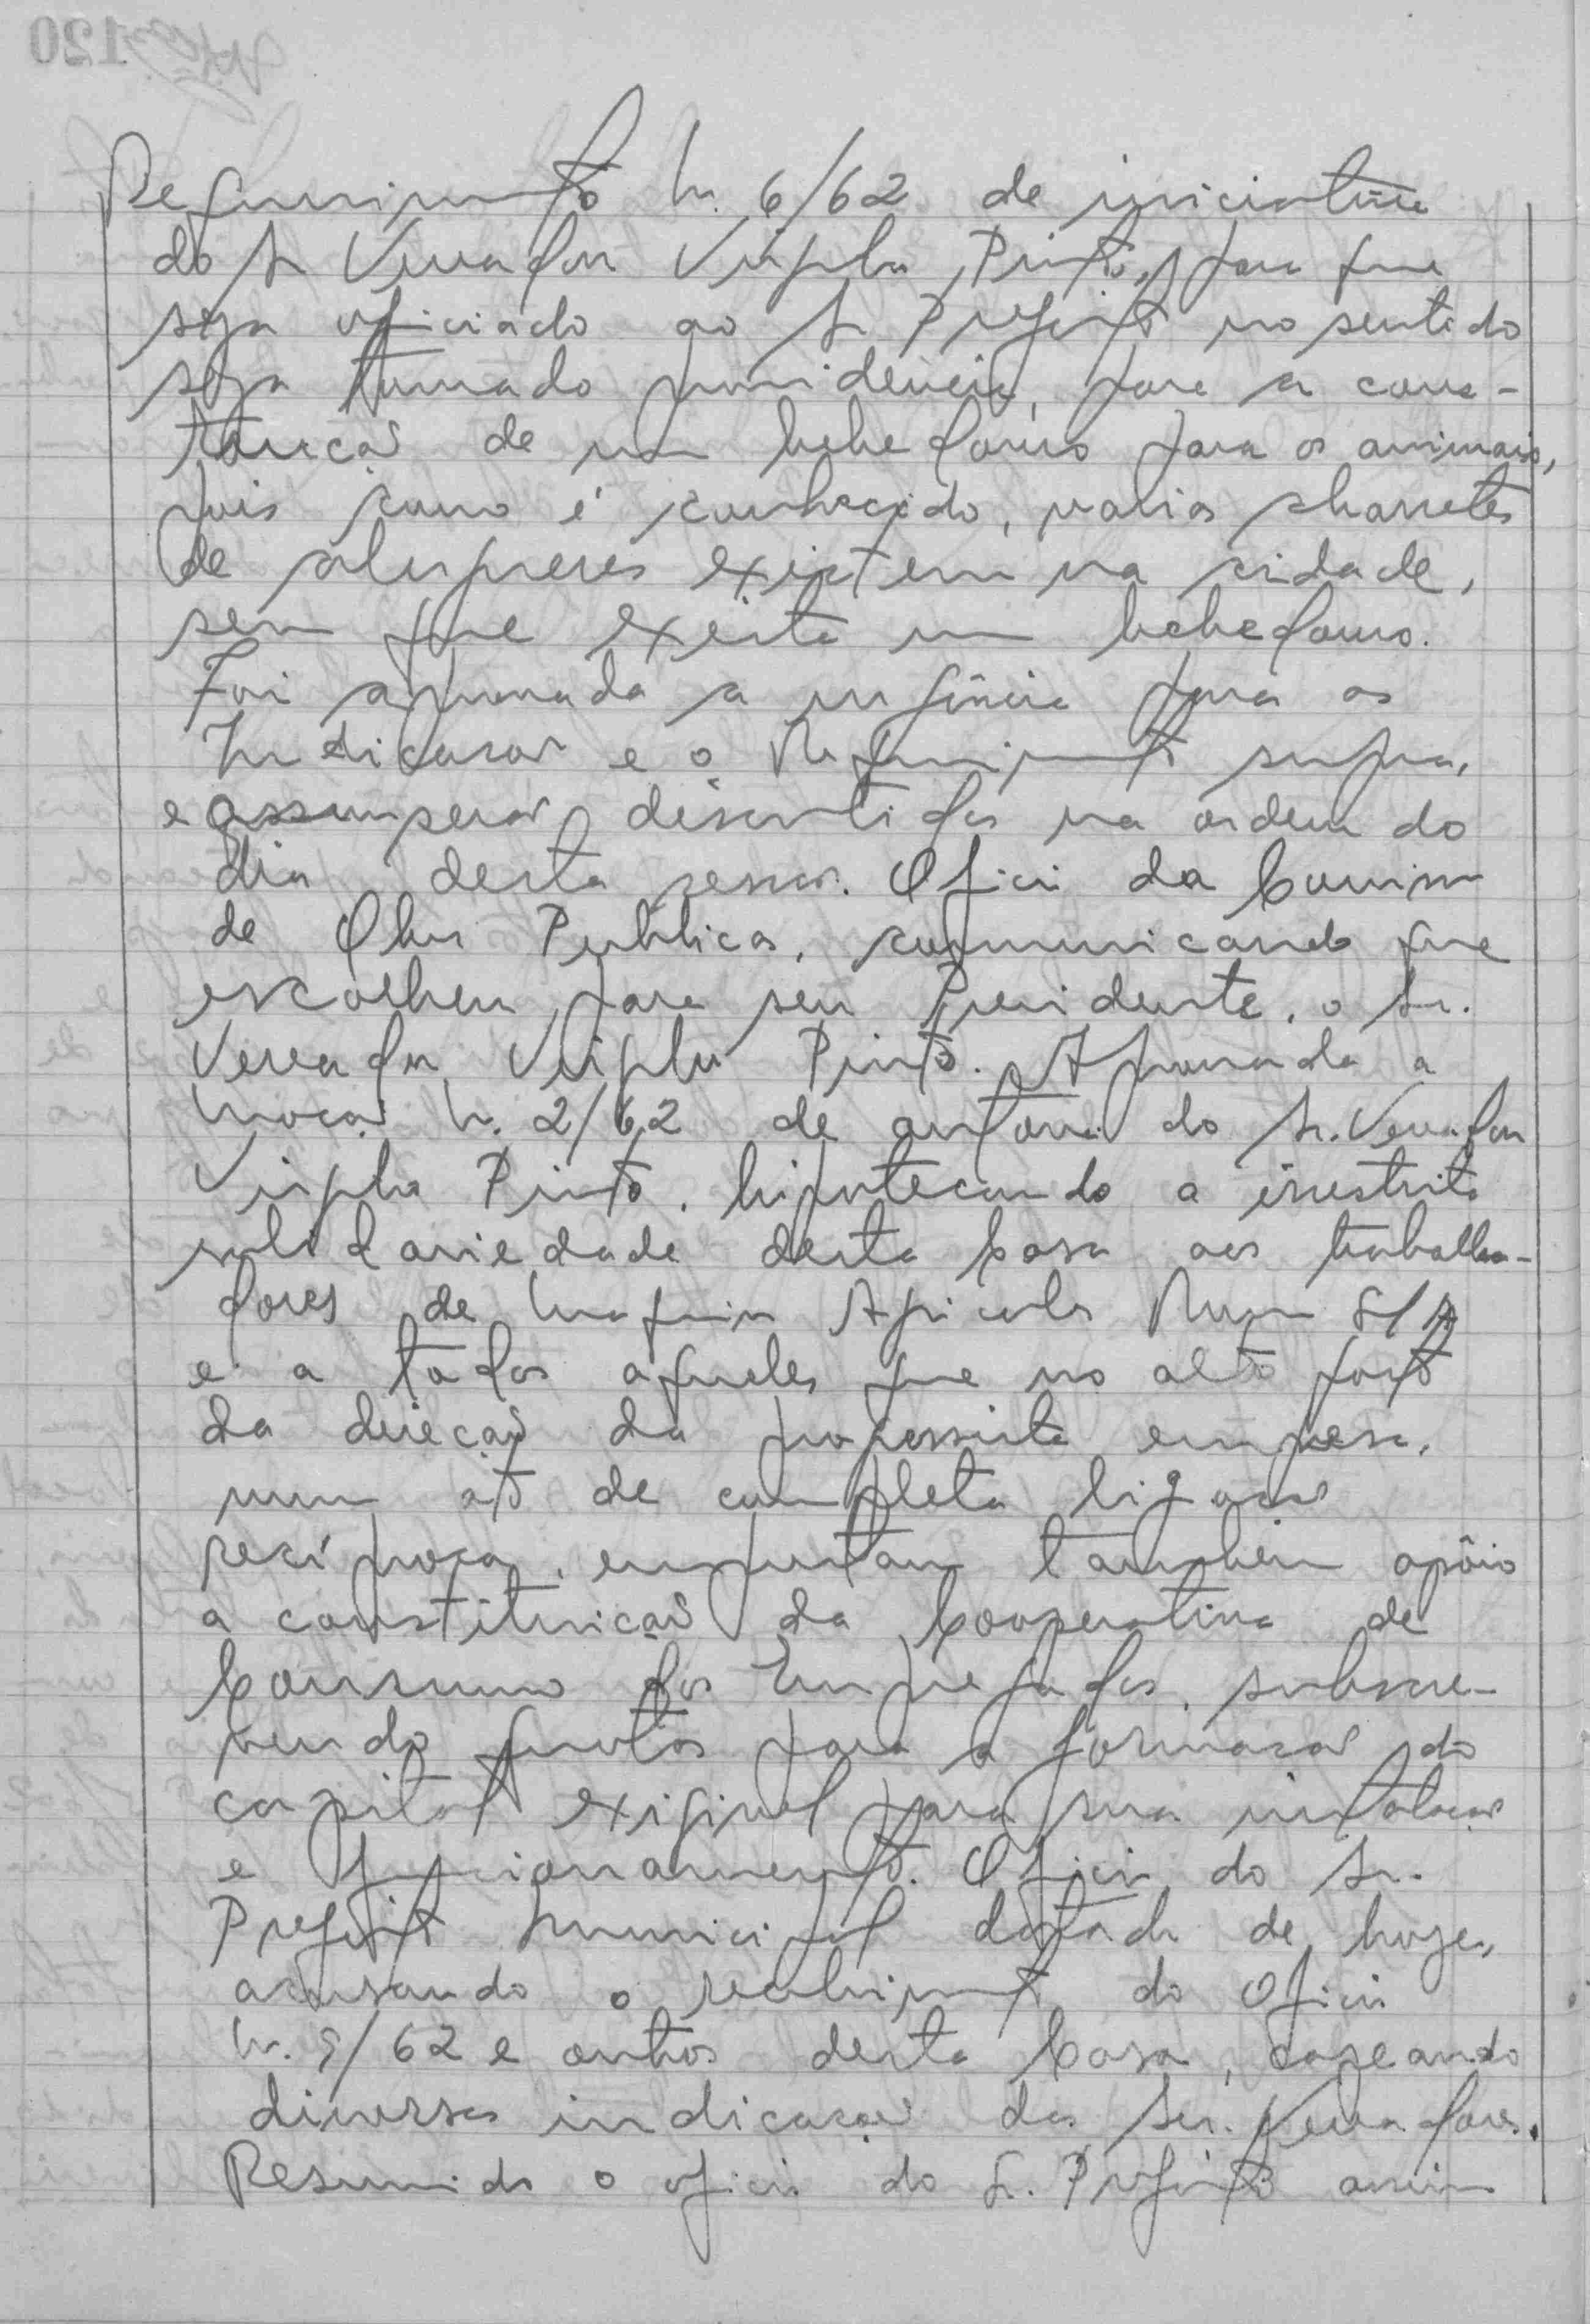 Requerimento n. 6/62 de iniciativa
do Sr Vereador Virgilio Pinto, para que
seja oficiado ao Sr Prefeito no sentido
seja tomado providência, para a cons-
trucão de um bebedouro para os animais,
pois como é conhecido, varias charretes
de alugueres existem na cidade,
sem que exista um bebedouro.
Foi aprovada a urgência para as
Indicacões e o Requerimento supra,
e assim serão discutidos na ordem do
dia desta sessão. Oficio da Comissão
de Obras Publicas, comunicando que
escolheu para seu Presidente, o Sr.
Vereador Virgilio Pinto. Aprovada a
Mocão n. 2/62 de autoria do Sr. Vereador
Virgilio Pinto, hipotecando a irrestrita
solidariedade desta Casa aos trabalha-
dores de Maquinas Agricolas S/A
e a todos aqueles que no alto posto
da direcão da progressista empresa,
num ato de completa ligacão
reciproca, emprestam também apôio
a constituicão da Cooperativa de
Consumo dos Empregados, subscre-
vendo quotas para a formacão do
capital exigivel para sua instalacão
e funcionamento. Oficio do Sr.
Prefeito Municipal datado de hoje,
acusando o recebimento do Oficio
n. 9/62 e outros desta Casa, capeando
diversas indicacões dos Srs. Vereadores.
Resumido o oficio do Sr. Prefeito assim
120